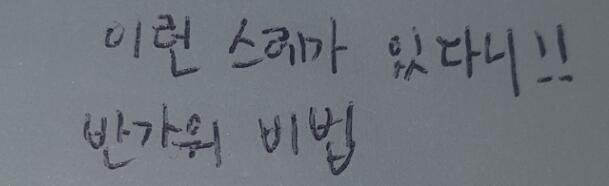 이런 스레가 있다니!!
반가워 비법